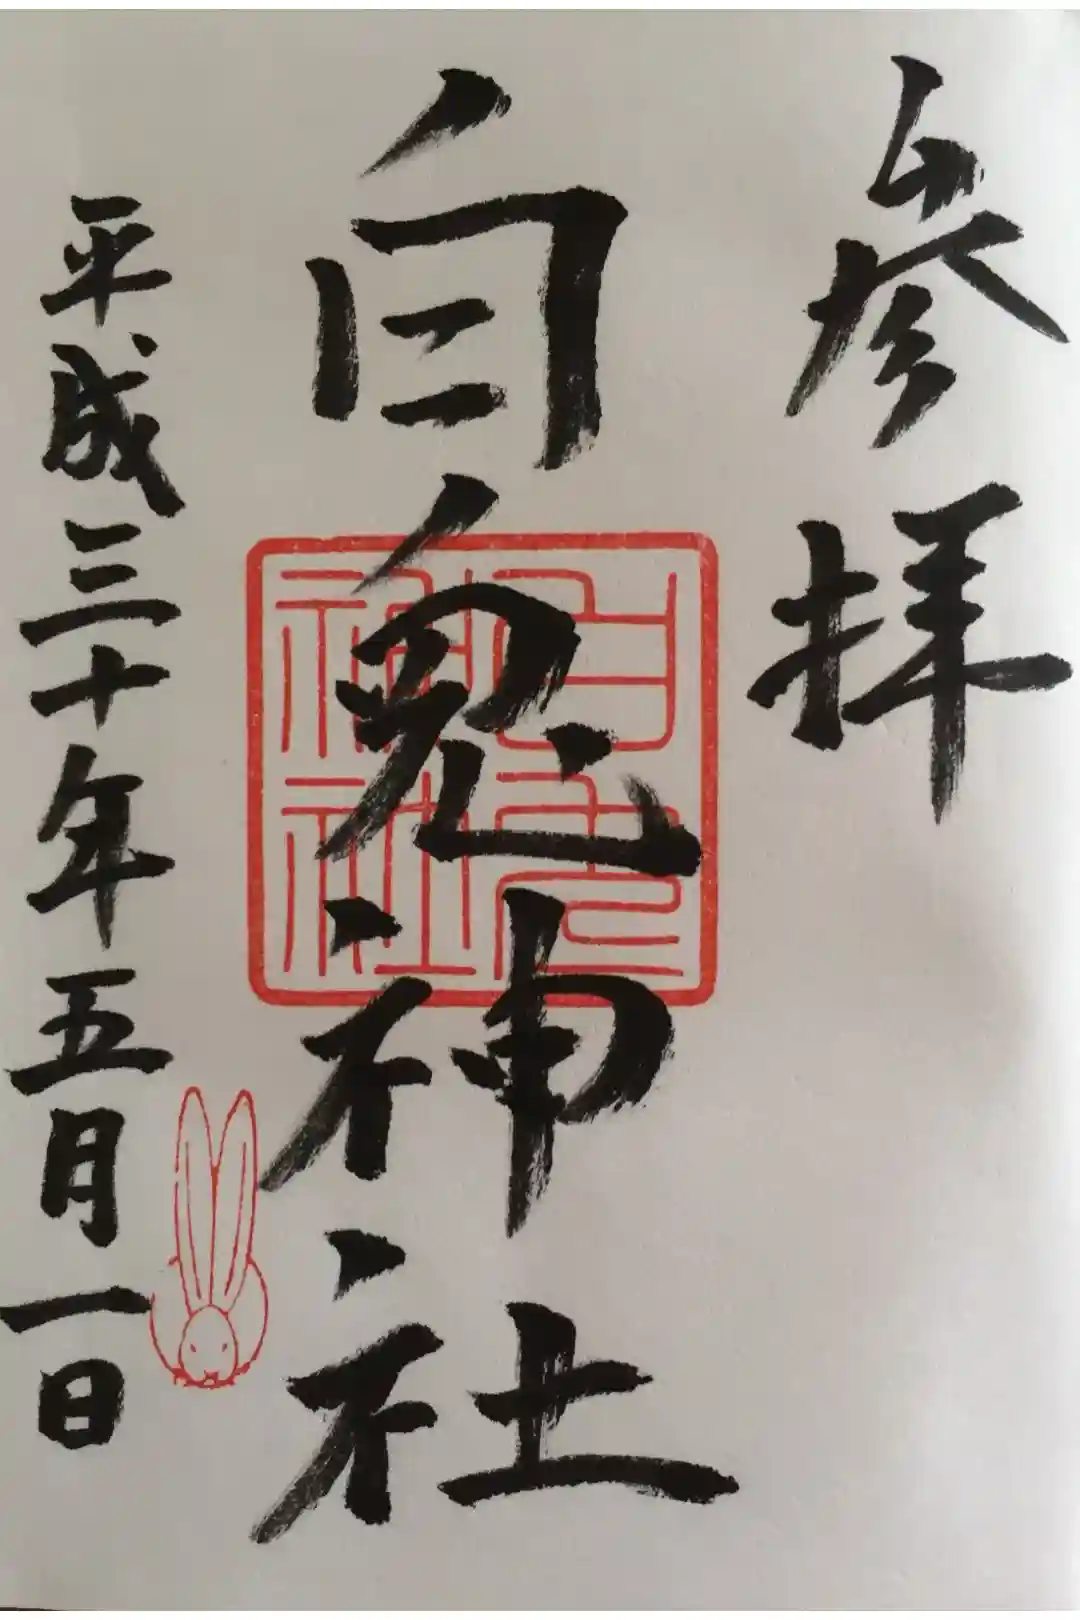 参拝
白兎神社
白兎神社
平成三十年五月一日